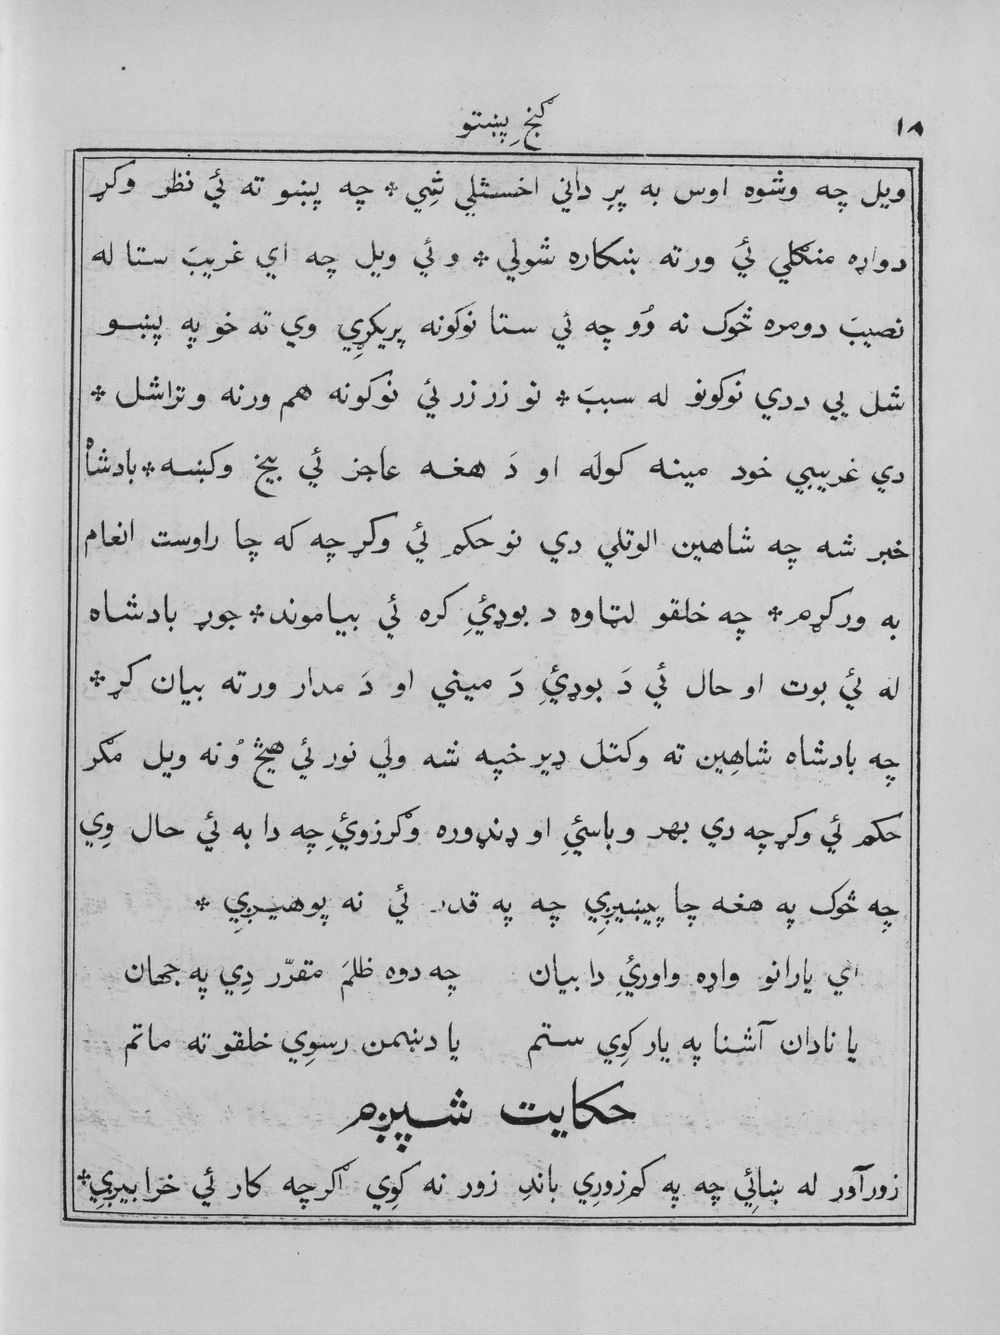 ١٨
گنجِ پښتو
ويل چه وشوه اوس به پرِ داني اخستلي شِي * چه پښو ته ئي نظر وکړ
دواړه منګلي ئي ورته ښکاره شولي * و ئي ويل چه اي غريبَ ستا له
نصيبَ دومره څوک نه وُو چه ئي ستا نوکونه پريکړِي وي ته خو په پښو
شل يي د دي نوکونو له سببَ * نو زر زر ئي نوکونه هم ورنه وتراشل *
دي غريبي خود مينه کوله او دَ هغه عاجز ئي بيخ وکښه * بادشاه
خبر شه چه شاهين الوتلي دي نو حکم ئي وکړ چه که چا راوست انعام
به ورکړم * چه خلقو لټاوه د بوډئِي کره ئي بياموند * جوړ بادشاه
له ئي بوت او حال ئي دَ بوډئِي دَ ميني او دَ مدار ورته بيان کړ *
چه بادشاه شاهِين ته وکتل ډير خپه شه ولي نور ئي هيڅ وُنه ويل مګر
حکم ئي وکړ چه دي بهر وباسئِي او ډنډوره وګرزوئِي چه دا به ئي حال وِي
چِه څوک په هغه چا پيښيږِي چه په قدر ئي نه پوهيږِي *
اي يارانو واړه واورئِي دا بيان چِه دوه ظلمَ مقرّر دِي په جهان
يا نادان آشنا په يار کوِي ستم يا دښمن رسوِي خلقو ته ماتم
حکايت شپږم
زورآور له ښائِي چه په کم زورِي باندِ زور نه کوِي اګرچه کار ئي خرابيږِي *